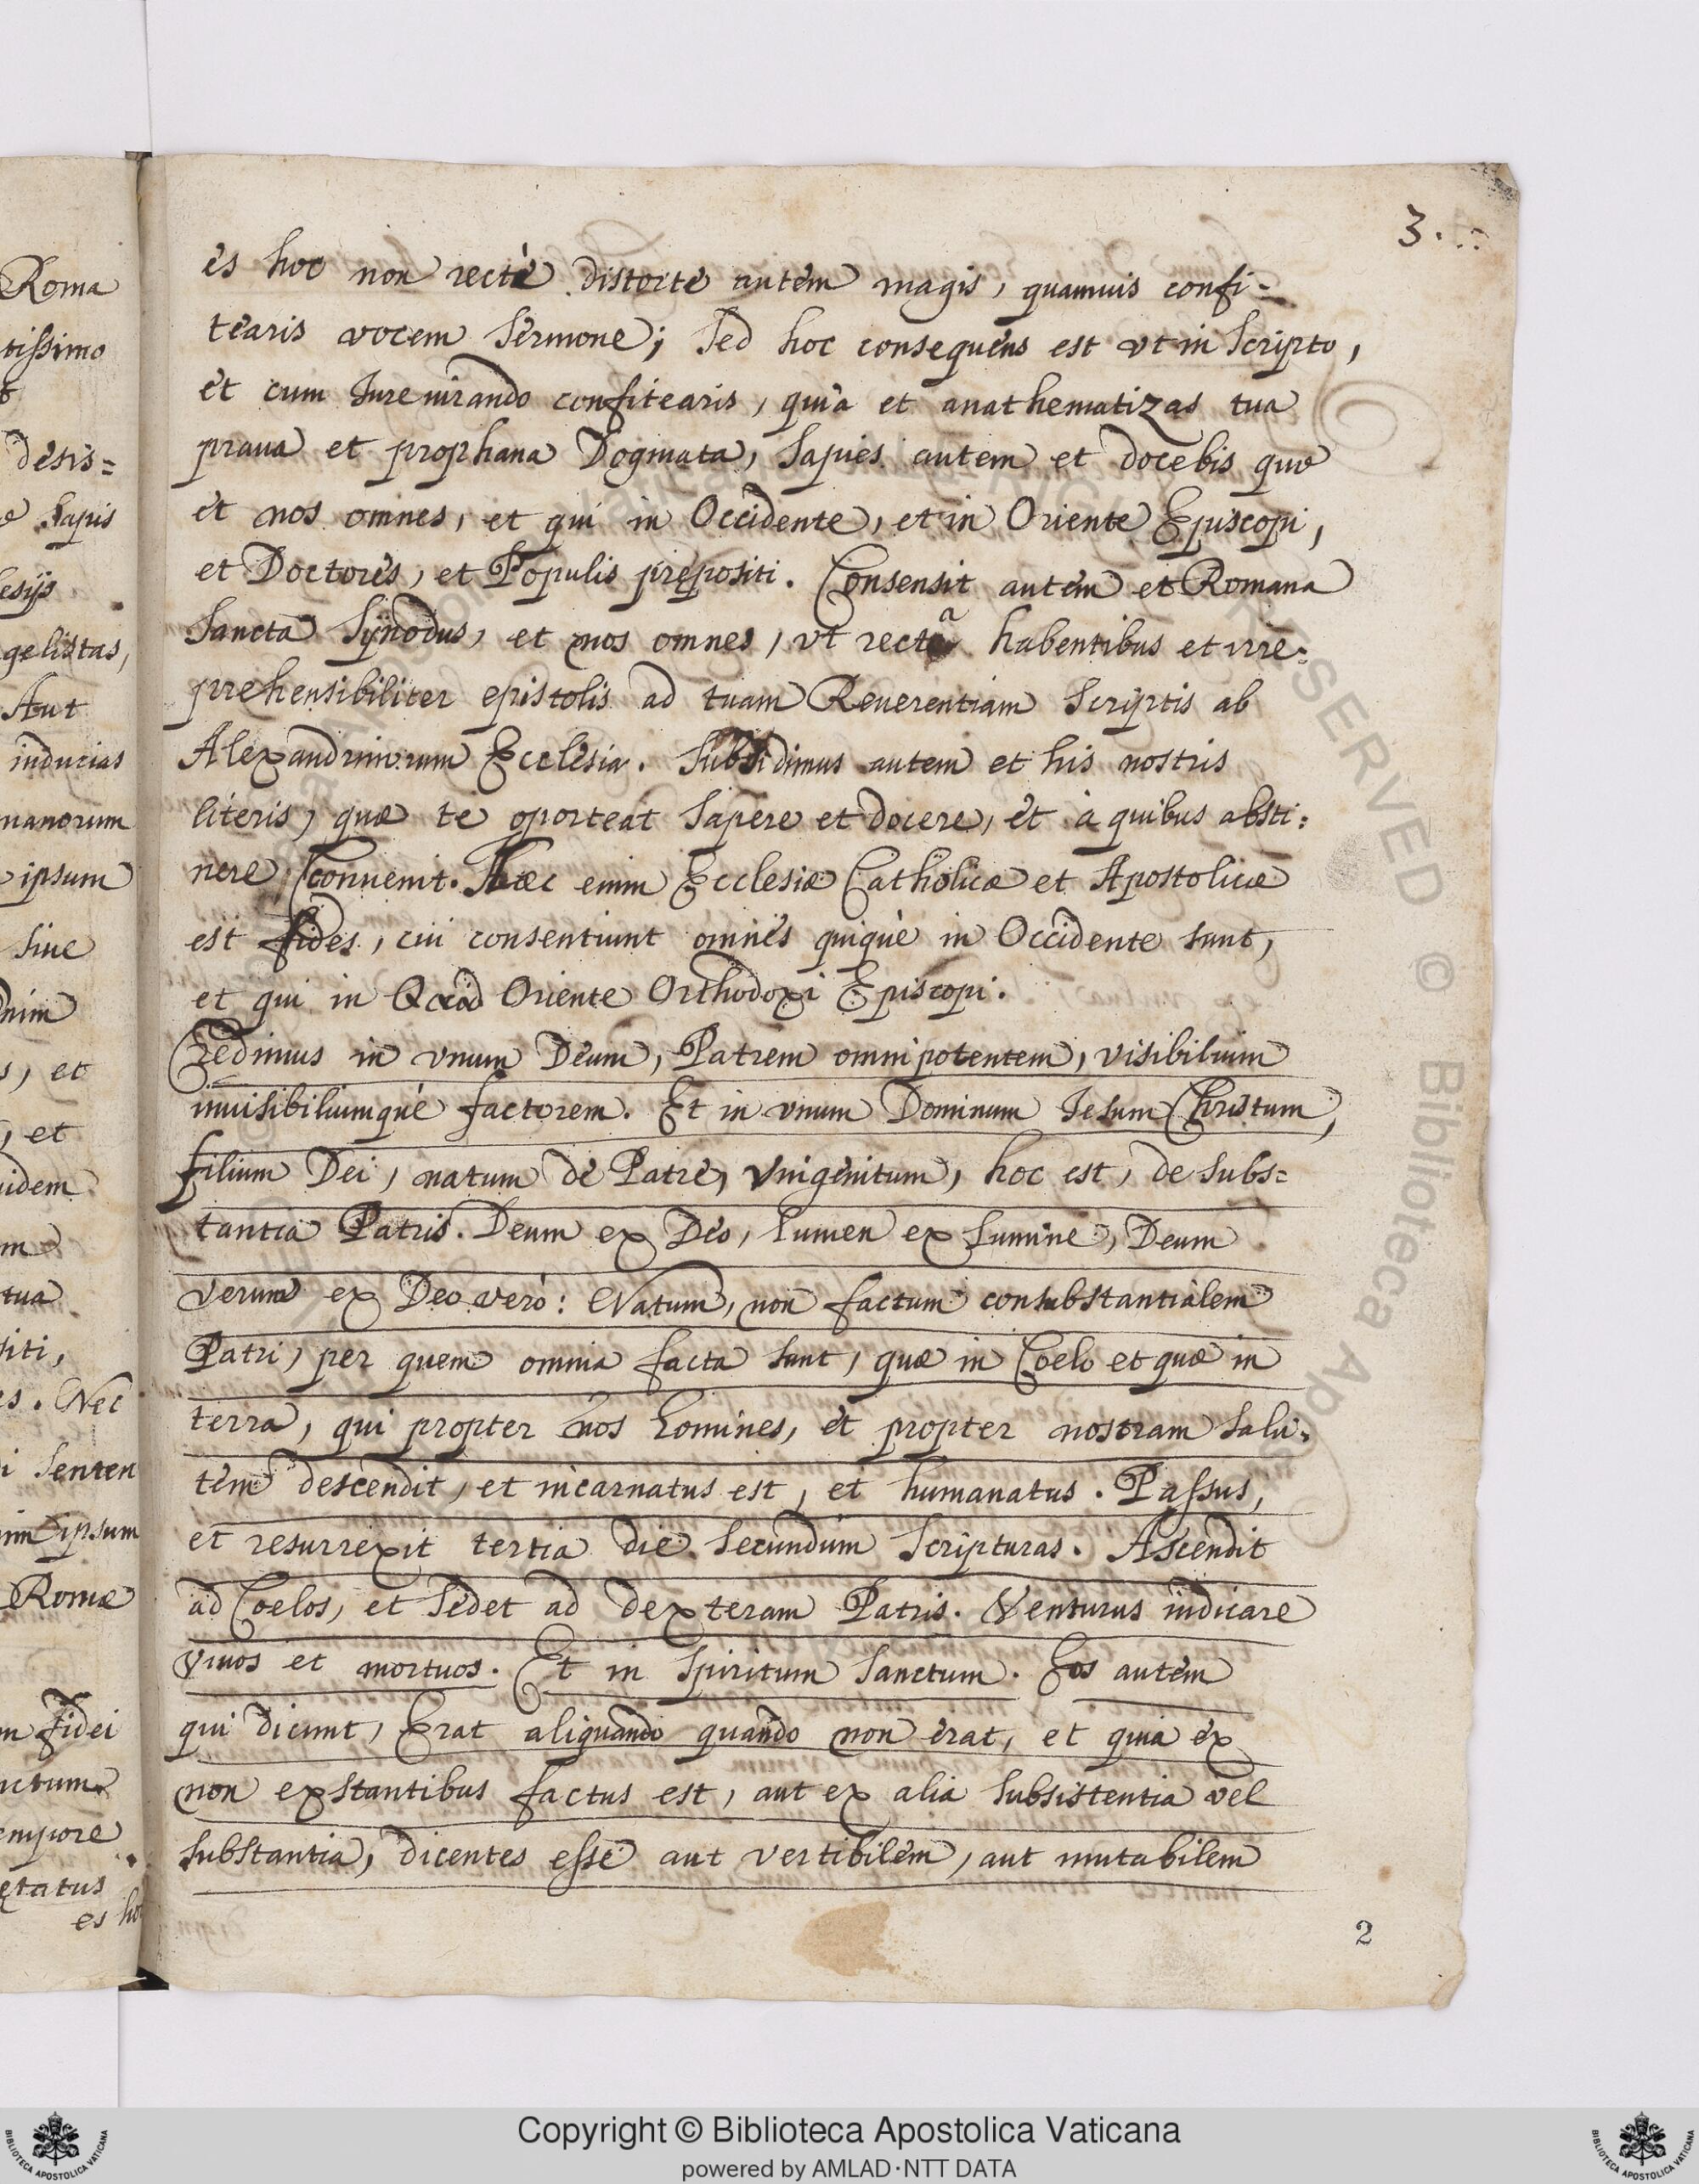 3.
es hoc non rectè distorte autem magis, quamuis confi-
tearis vocem sermone; sed hoc consequens est vt in scripto,
et cum Iureiurando confitearis, quia et anathematizas tua
praua et prophana Dogmata, sapies autem et docebis quæ
et nos omnes, et qui in Occidente, et in Oriente Episcopi,
et Doctores, et Populis prępositi. Consensit autem et Romana
sancta Synodus, et nos omnes, vt recta habentibus et irre-
prehensibiliter epistolis ad tuam Reuerentiam scriptis ab
Alexandrinorum Ecclesia. Subdidimus autem et his nostris
literis, quæ te oporteat sapere et docere, et à quibus absti:
nere conuenit. Hæc enim Ecclesiæ Catholicæ et Apostolicæ
est fides, cui consentiunt omnes quique in Occidente sunt,
et qui in Oriente Orthodoxi Episcopi.
Credimus in vnum Deum, Patrem omnipotentem, visibilium
inuisibiliumque factorem. Et in vnum Dominum Iesum Christum,
filium Dei, natum de Patre, vnigenitum, hoc est, de subs=
tantia Patris. Deum ex Deo, lumen ex lumine, Deum
verum ex Deo vero: Natum, non factum consubstantialem
Patri, per quem omnia facta sunt, quæ in Coelo et quæ in
terra, qui propter nos homines, et propter nostram salu-
tem descendit, et incarnatus est, et humanatus. Passus,
et resurrexit tertia die secundum scripturas. Ascendit
ad Coelos, et sedet ad dexteram Patris. Venturus iudicare
viuos et mortuos. Et in spiritum sanctum. Eos autem
qui dicunt, Erat aliquando quando non erat, et quia ex
non exstantibus factus est, aut ex alia subsistentia vel
substantia, dicentes esse aut vertibilem, aut mutabilem
2
Roma
tissimo
desis=
sapis
esijs
gelistas,
Aut
inducias
manorum
ipsum
siue
nim
s, et
, et
uidem
m
tua
siti,
es. Nec
i senten
im ipsum
Romæ
m fidei
nctum
empore
etatus
es hoc
© Biblioteca Apostolica Vaticana ALL RIGHTS RESERVED © Biblioteca Ap
Copyright © Biblioteca Apostolica Vaticana
powered by AMLAD·NTT DATA
BIBLIOTECA APOSTOLICA VATICANA
BIBLIOTECA APOSTOLICA VATICANA